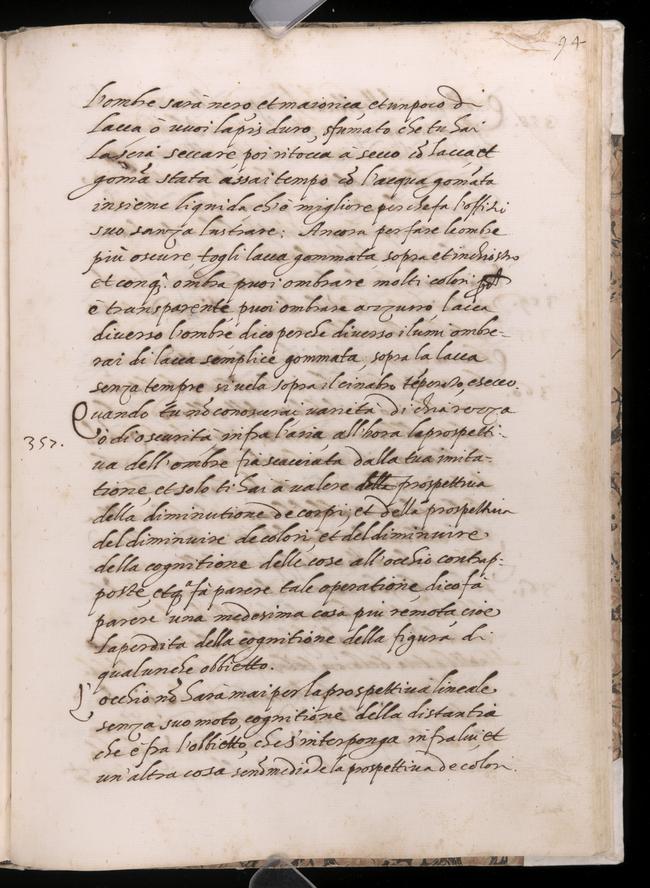 94
l'ombre sarà nero et maiorica et un poco di
lacca ò vuoi lapis duro, sfumato che tu hai
lascià seccare poi ritocca à secco cō lacca et
gomā stata assai tempo cō l'acqua gomata
insieme liquida ch'è migliore perche fa l'offitio
suo sanza lustrare: Ancora per fare l'ombre
più oscure, togli lacca gommata sopra et inchiostro
et con q.a ombra puoi ombrare molti colori
è transparente, puoi ombrare azzuro, lacca
diverso l'ombre dico perche diverso i lumi ombre-
rai di lacca semplice gommata, sopra la lacca
senza tempre si vela sopra il cinabro tēperato, e secco.
Quando tu nō conoscerai varietà di chiarezza
357.
ò di oscurità infra l'aria, all'hora la prospetti-
va dell'ombre fia scacciata dalla tua imita-
tione, et solo ti hai à valere della prospettiva
della diminutione de corpi, et della prospettiva
del diminuire de colori, et del diminuire
della cognitione delle cose all'occhio contrap-
poste, et q.a fà parere tale operatione, dico fà
parere una medesima cosa più remota, cioè
la perdita della cognitione della figura di
qualunche obbietto.
L'occhio nō harà mai per la prospettiva lineale
senza suo moto, cognitione della distantia
che è fra l'obbietto, che s'interponga infra lui, et
un'altra cosa, se nō mediā de la prospettiva de colori.